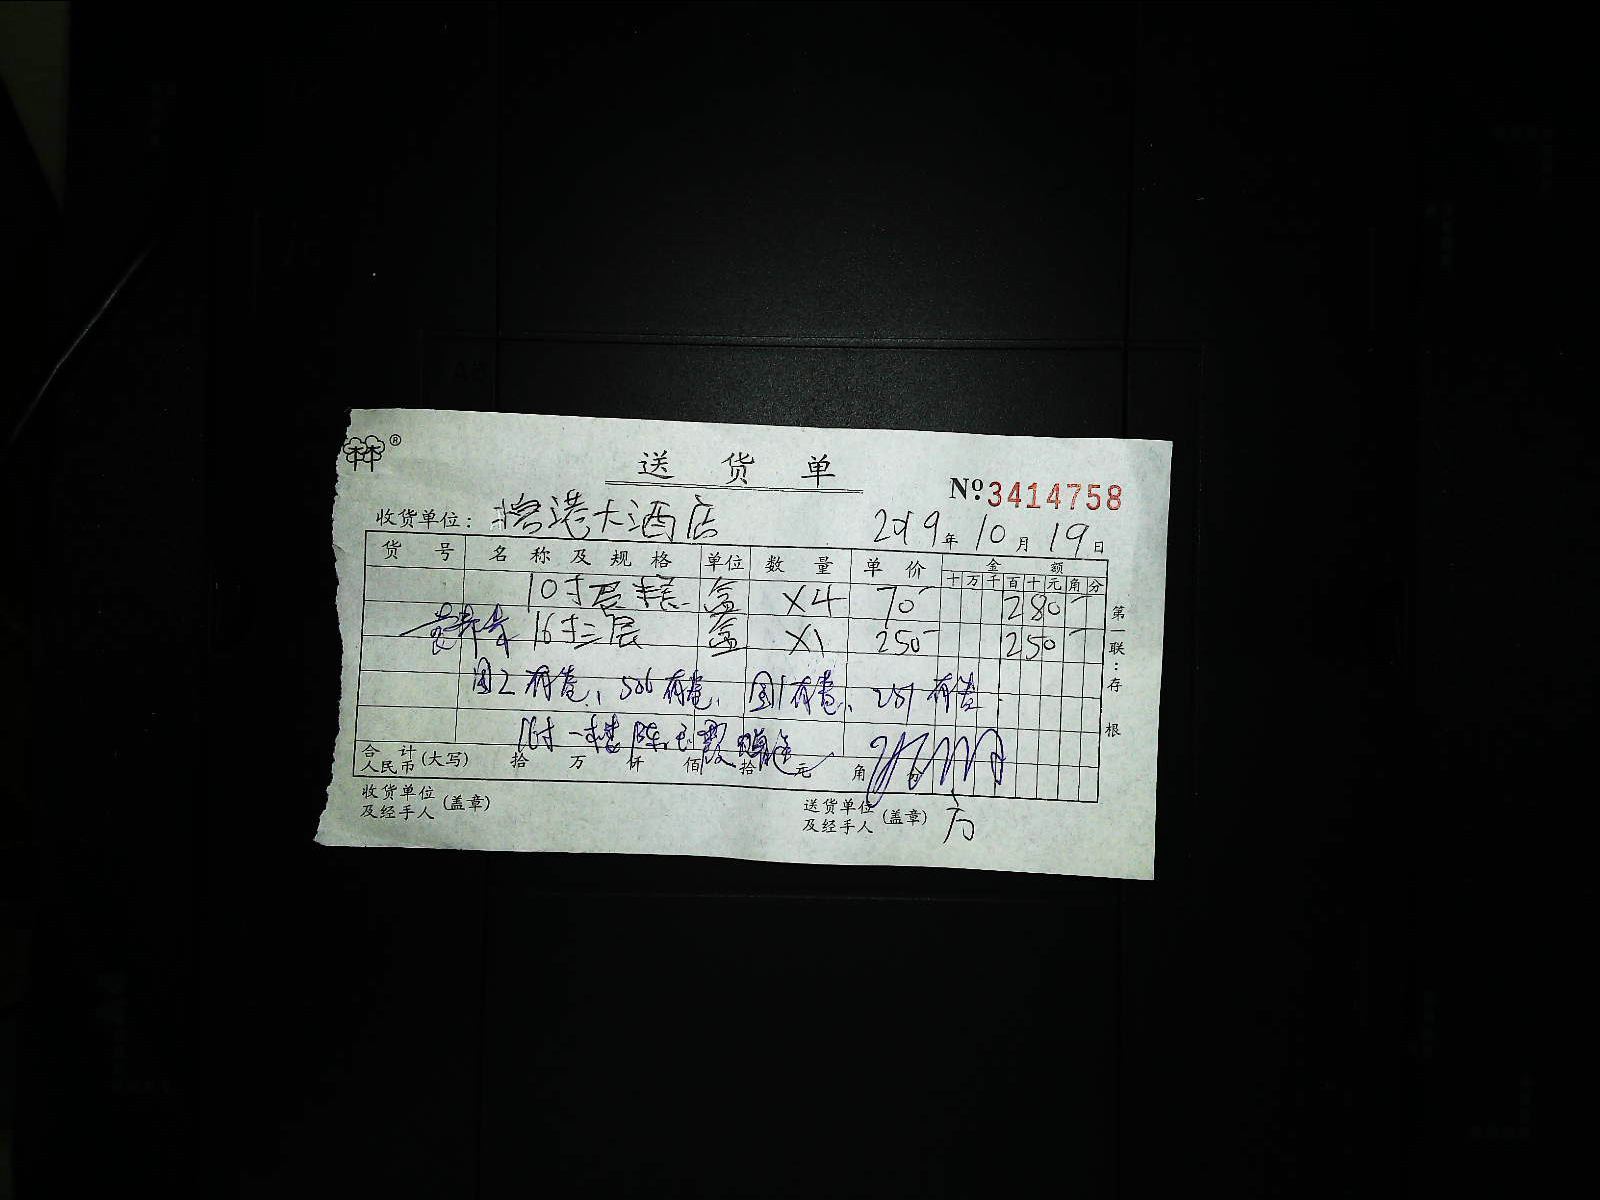 林®
送 货 单
№3414758
收货单位: 港大酒店 2019年10月19日
货 号 名 称 及 规 格 单位 数 量 单 价 金 额
十 万 千 百 十 元 角 分
10寸蛋糕 盒 X4 70- 280-
16寸三层 盒 X1 250- 250-
国2有凭、506有凭、国1有凭、251有凭
附一楼陈玉霞
合 计 人民币 (大写) 拾 万 仟 佰 拾 元 角 分
收货单位及经手人 (盖章) 送货单位及经手人 (盖章) 方
第一联:存根